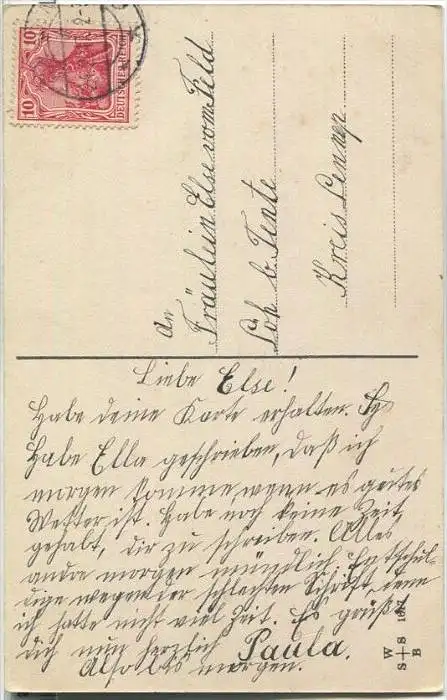 An
Fräulein Else vom Feld
Loh b. Tente
Kreis Lennep
Liebe Else!
Habe deine Karte erhalten.
Habe Ella geschrieben, daß ich
morgen komme wenn es gutes
Wetter ist. Habe noch keine Zeit
gehabt, dir zu schreiben. Alles
andre morgen mündlich. Entschul-
dige wegen der schlechten Schrift, denn
ich hatte nicht viel Zeit. Es grüßt
dich nun herzlich Paula.
Also bis morgen.
10 10
DEUTSCHES REICH
W
S+S
B